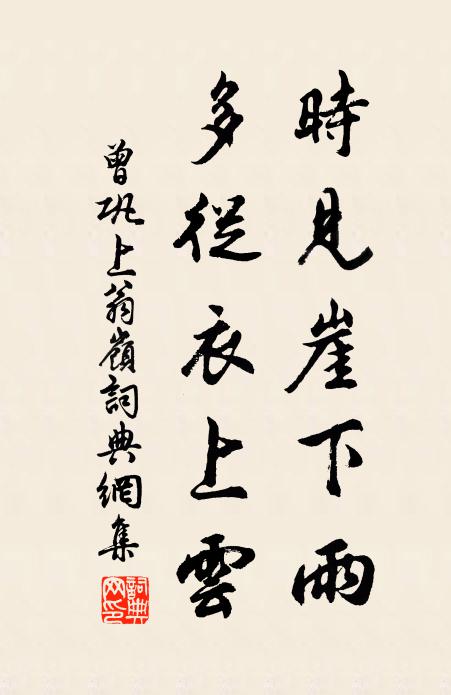 時見崖下雨
多從衣上雲
曾巩上翁嶺詞典網集
詞典網印